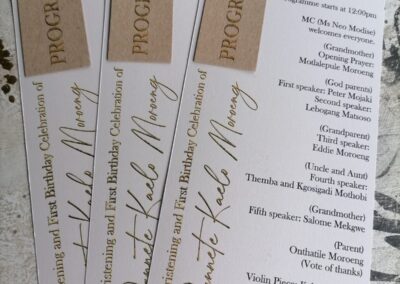 PROGR
PROGR
PROGR
ristening and First Birthday Celebration of
Kaelo Moroeng
ristening and First Birthday Celebration of
Kaelo Moroeng
ristening and First Birthday Celebration of
Kaelo Moroeng
ogramme starts at 12:00pm
MC (Ms Neo Modise)
welcomes everyone.
(Grandmother)
Opening Prayer:
Motlalepule Moroeng
(God parents)
First speaker: Peter Mojaki
Second speaker:
Lebogang Matsoso
(Grandparent)
Third speaker:
Eddie Moroeng
(Uncle and Aunt)
Fourth speaker:
Themba and Kgosigadi Mothobi
(Grandmother)
Fifth speaker: Salome Mekgwe
(Parent)
Onthatile Moroeng
(Vote of thanks)
Violin